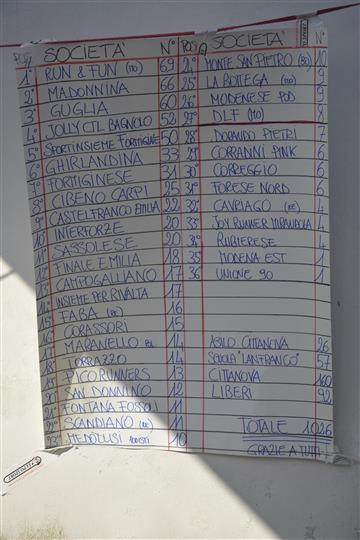 POS SOCIETA' N° POS SOCIETA' N°
1° RUN & FUN (MO) 69
2° MADONNINA 66
3° GUGLIA 60
4° JOLLY CTL BAGNOLO 52
5° SPORTINSIEME FORMIGINE 50
6° GHIRLANDINA 33
7° FORMIGINESE 31
8° CIBENO CARPI 25
9° CASTELFRANCO EMILIA 22
10° INTERFORZE 20
11° SASSOLESE 20
12° FINALE EMILIA 18
13° CAMPOGALLIANO 17
14° INSIEME PER RIVALTA 17
15° FABA 16
16° CORASSORI 15
17° MARANELLO 14
18° TORRAZZO 14
19° PICO RUNNERS 13
20° SAN DONNINO 12
21° FONTANA FOSSO 11
22° SCANDIANO (RE) 11
23° MEDOLUSI 10
24° MONTE SAN PIETRO (BO) 10
25° LA BOTTEGA 9
26° MODENESE POD 9
27° DLF (MO) 8
28° DORANDO PIETRI 7
29° CORRADINI PINK 7
30° CORREGGIO 6
31° FORESE NORD 6
32° CAVRIAGO (RE) 4
33° JOY RUNNER MIRANDOLA 4
34° RUBIERESE 4
35° MODENA EST 1
36° UNIONE 90 1
ASILO CITTANOVA 26
SCUOLA "LANFRANCO" 57
CITTANOVA 100
LIBERI 92
TOTALE 1026
GRAZIE A TUTTI